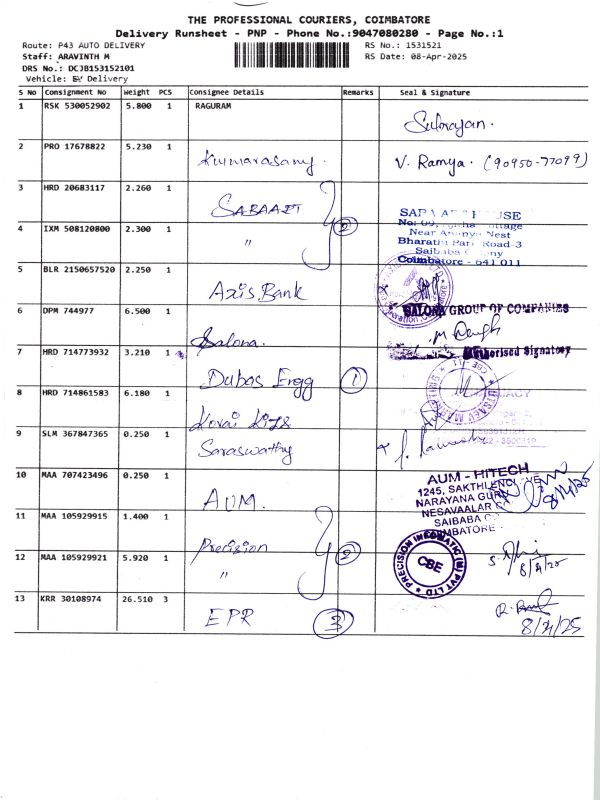 THE PROFESSIONAL COURIERS, COIMBATORE
Delivery Runsheet - PNP - Phone No.:9047080280 - Page No.:1
Route: P43 AUTO DELIVERY
RS No.: 1531521
Staff: ARAVINTH M
RS Date: 08-Apr-2025
DRS No.: DCJB153152101
Vehicle: BY Delivery
S No Consignment No Weight PCS Consignee Details Remarks Seal & Signature
1 RSK 530052902 5.800 1 RAGURAM
2 PRO 17678822 5.230 1 Kumarasamy. V. Ramya. (90950-77099)
3 HRD 20683117 2.260 1
4 IXM 508120800 2.300 1 " 2
HOUSE
Near Ananya Nest
Bharathi Park Road-3
Saibaba Colony
Coimbatore - 641 011
5 BLR 2150657520 2.250 1 Axis Bank
6 DPM 744977 6.500 1 Salona.
SALONA GROUP OF COMPANIES
Authorised Signatory
7 HRD 714773932 3.210 1 Dubas Engg 1
8 HRD 714861583 6.180 1
9 SLM 367847365 0.250 1 Saraswathy
10 MAA 707423496 0.250 1 AUM.
AUM - HITECH
1245, SAKTHI
NARAYANA GURU
NESAVAALAR
SAIBABA
COIMBATORE
8/4/25
11 MAA 105929915 1.400 1 Precision
12 MAA 105929921 5.920 1 " 2
PRECISION INFOMATIC (M) PVT LTD
CBE
8/4/25
13 KRR 30108974 26.510 3 EPR 3
8/4/25